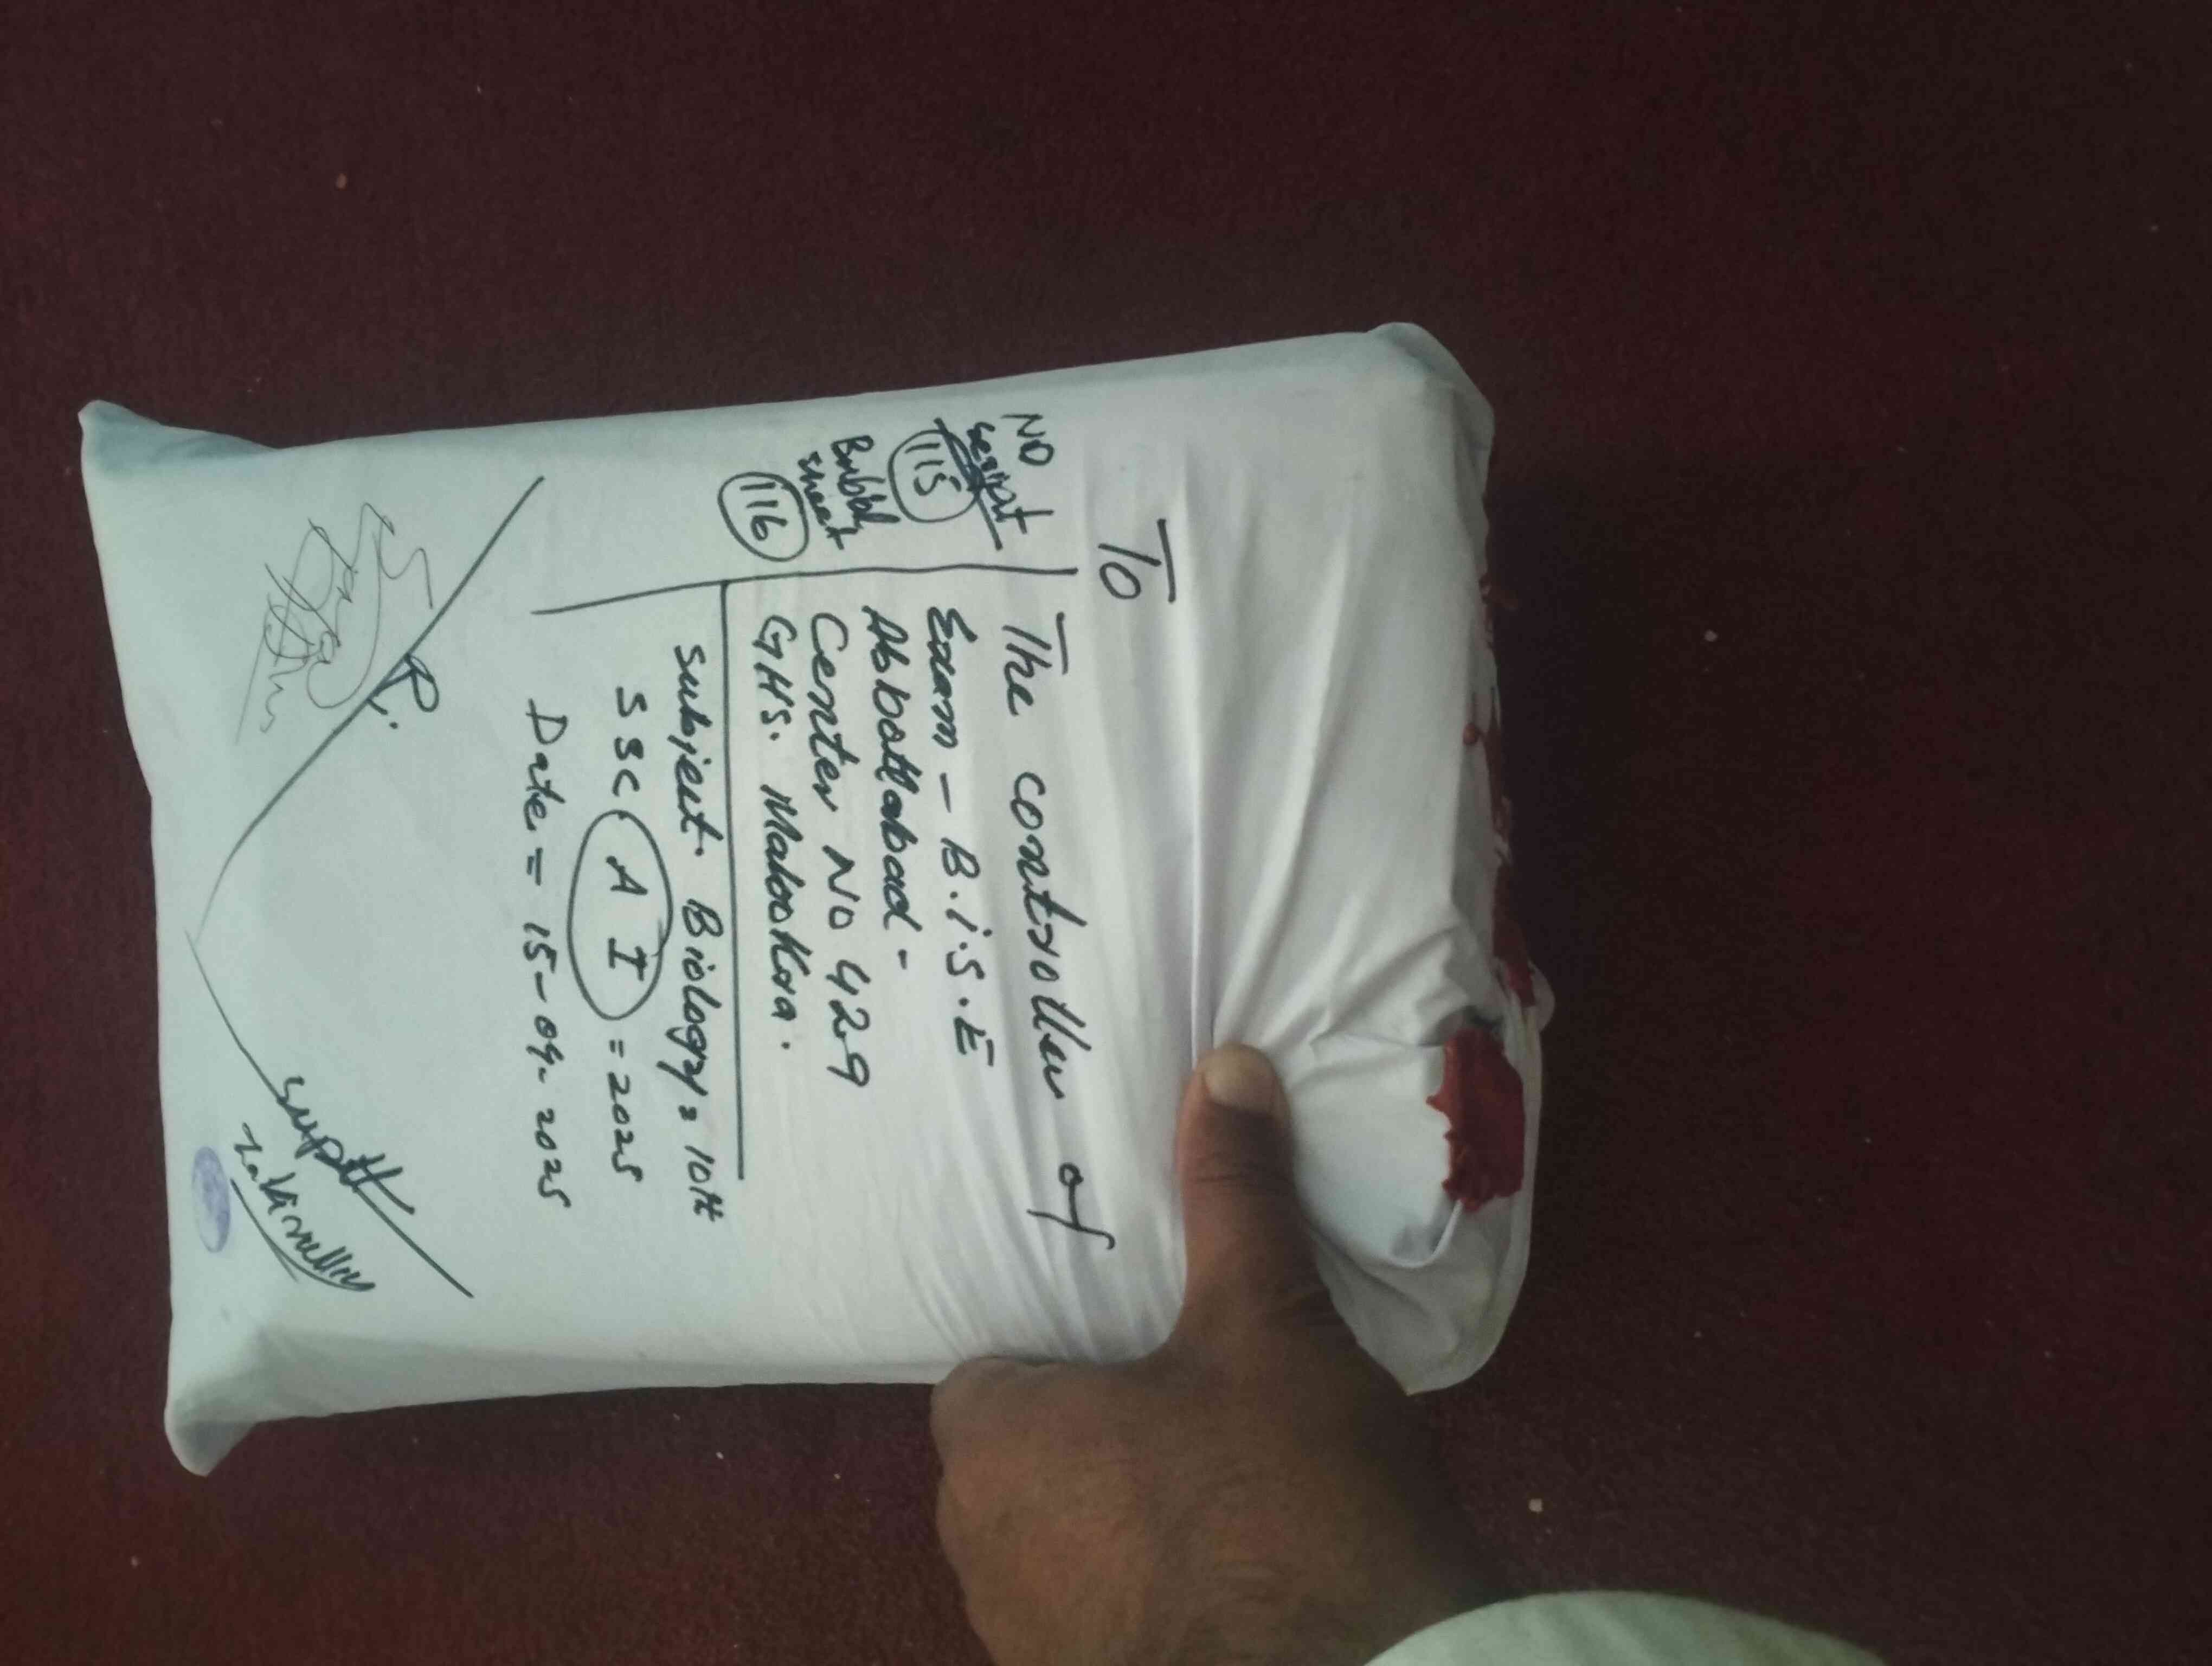 To
The controller of
Exam - B.i.S.E
Abbottabad -
Center No 429
GHS. Malookra.
NO
script
115
Bubbl
sheet
116
Subject. Biology, 10th
SSC A I = 2025
Date = 15-04-2025
Supdtt